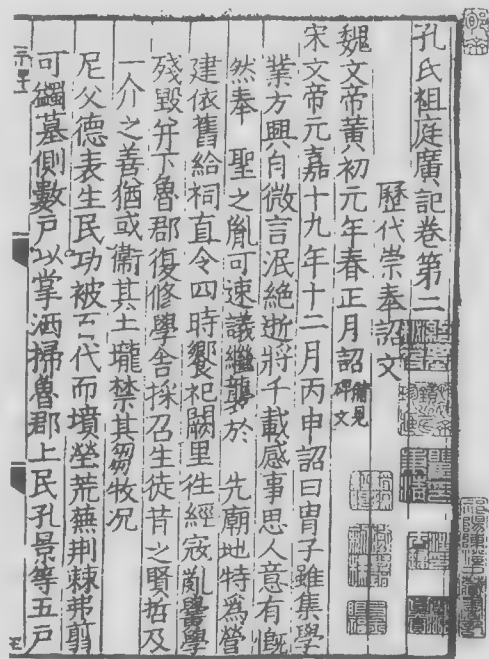 孔氏祖庭廣記卷第二
歷代崇奉詔文
魏文帝黃初元年春正月詔備見碑文
宋文帝元嘉十九年十二月丙申詔曰胄子雖集學
業方興自微言泯絕逝將千載感事思人意有旣
然奉 聖之胤可速議繼襲於 先廟地特爲營
建依舊給祠直令四時饗祀闕里往經寇亂黌學
殘毀幷下魯郡復修學舍採召生徒昔之賢哲及
一介之善猶或衞其土壠禁其芻牧况
尼父德表生民功被百代而墳塋荒蕪荆棘弗翦
可蠲墓側數戶以掌洒掃魯郡上民孔景等五戶